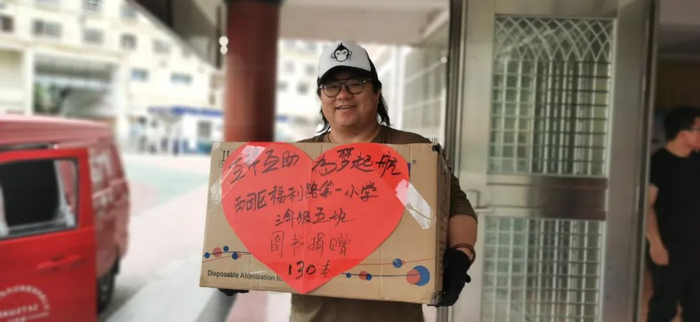 互助 为梦起航
西固区福利路第一小学
三年级五班
图书捐赠
130本
Disposable Atomization